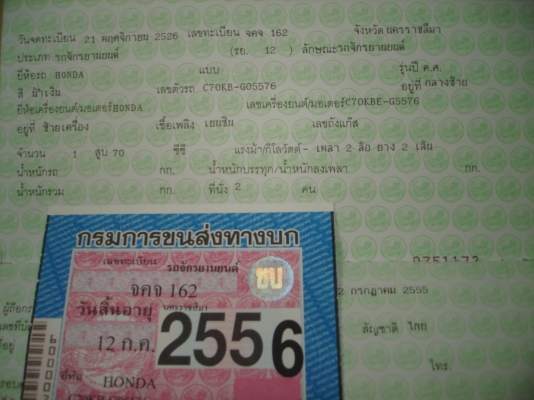 วันจดทะเบียน 21 พฤศจิกายน 2526 เลขทะเบียน จคจ 162 จังหวัด นครราชสีมา
ประเภท รถจักรยานยนต์ (รย. 12 ) ลักษณะรถจักรยานยนต์
ยี่ห้อรถ HONDA แบบ รุ่นปี ค.ศ.
สี น้ำเงิน เลขตัวรถ C70KB-G05576 อยู่ที่ กลางซ้าย
ยี่ห้อเครื่องยนต์/มอเตอร์HONDA เลขเครื่องยนต์/มอเตอร์C70KBE-G5576
อยู่ที่ ซ้ายเครื่อง เชื้อเพลิง เบนซิน เลขถังแก๊ส
จำนวน 1 สูบ 70 ซีซี แรงม้า/กิโลวัตต์- เพลา 2 ล้อ ยาง 2 เส้น
น้ำหนักรถ กก. น้ำหนักบรรทุก/น้ำหนักลงเพลา กก.
น้ำหนักรวม กก. ที่นั่ง 2 คน
กรมการขนส่งทางบก
เลขทะเบียน รถจักรยานยนต์
ขบ
จคจ 162
นครราชสีมา
วันสิ้นอายุ
12 ก.ค. 2556
ยี่ห้อ HONDA
2 กรกฎาคม 2555
สัญชาติ ไทย
โทร.